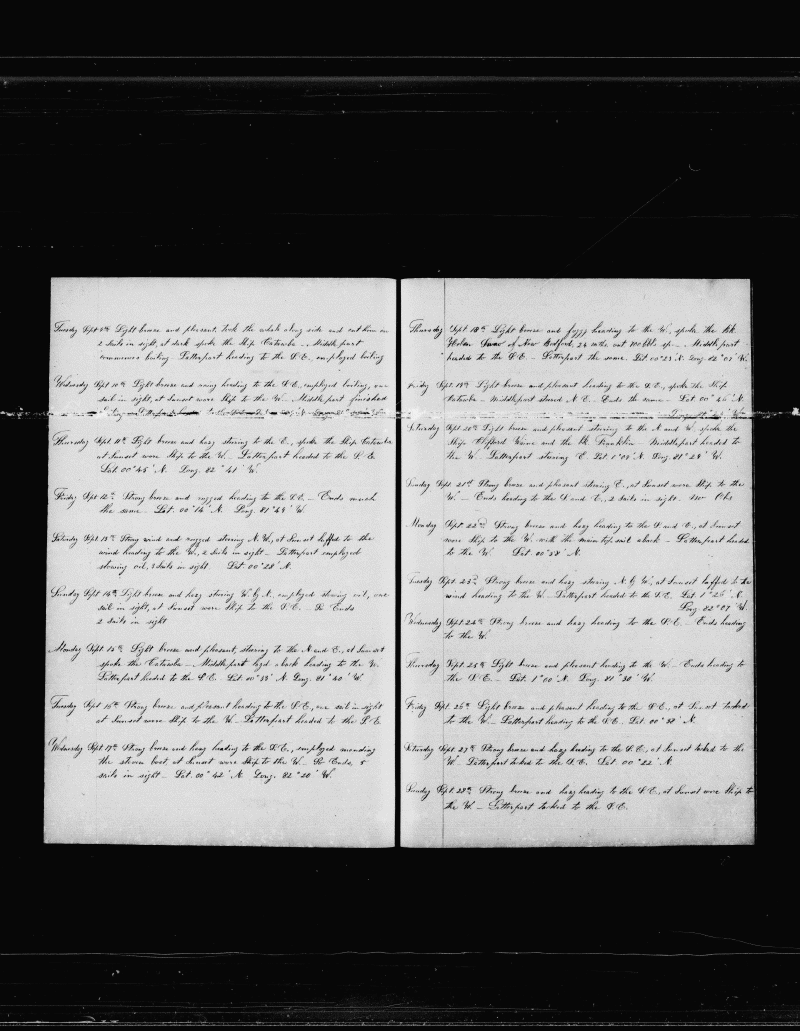 Tuesday Sept 9th Light breese and pleasent, took the whale along side and cut him in
2 sails in sight, at dark spoke the Ship Catawba - Middle part
commenced boiling - Latterpart heading to the S.E., employed boiling
Wednesday Sept 10th Light breese and heading to the S.E., employed boiling, one
sail in sight, at Sunset wore Ship to the W. - Middlepart finished
Thursday Sept 11th Light breese and hazy stering to the E., spoke the Ship Catawba
at Sunset wore Ship to the W. - Latterpart headed to the S.E.
Lat. 00° 45' N. Long. 82° 41' W.
Friday Sept 12th Strong breese and rugged heading to the S.E. - Ends much
the same - Lat. 00° 14' N. Long. 81° 49' W.
Saturday Sept 13th Strong wind and rugged stering N.W., at Sunset luffed to the
wind heading to the W., 2 Sails in sight - Latterpart employed
stowing oil, 3 sails in sight. Lat 00° 28' N.
Sunday Sept 14th Light breese and hazy stering W.by N., employed stowing oil, one
sail in sight, at Sunset wore Ship to the S.E. - So Ends
2 sails in sight
Monday Sept 15th Light breese and pleasent, stering to the N and E., at Sunset
spoke the Catawba - Middlepart layd aback heading to the W.
Latterpart headed to the S.E. Lat. 00° 53' N. Long. 81° 40' W.
Tuesday Sept 16th Strong breese and pleasent heading to the S.E., one sail in sight
at Sunset wore Ship to the W - Latterpart headed to the S.E.
Wednesday Sept 17th Strong breese and hazy heading to the S.E., employed mending
the stoven boat, at Sunset wore Ship to the W. So Ends, 5
sails in sight - Lat. 00° 42' N. Long. 82° 20' W.
Thursday Sept. 18th Light breese and foggy heading to the W., spoke the Bk
of New Bedford, 24 mths. out 100 bbls sp - Middle part
headed to the S.E. - Latterpart the same. Lat. 00° 23' N. Long 82° 07' W.
Friday Sept 19th Light breese and pleasent heading to the S.E., spoke the Ship
Catawba - Middlepart steered N.E. - Ends the same - Lat 00° 46' N.
Saturday Sept 20th Light breese and pleasent stering to the N and W., spoke the
Ship and the Bk Franklin - Middlepart headed to
the W. - Latterpart stering E. Lat 1° 09' N. Long. 81° 28' W.
Sunday Sept 21st Strong breese and pleasent stering E., at Sunset wore Ship to the
W. - Ends heading to the S and E., 2 Sails in sight - No Obs
Monday Sept 22nd Strong breese and hazy heading to the S. and E., at Sunset
wore Ship to the W. with the main top sail aback - Latterpart headed
to the W. Lat 00° 58' N.
Tuesday Sept. 23rd Strong breese and hazy stering N by W., at Sunset luffed to the
wind heading to the W. - Latterpart headed to the S.E. Lat 1° 26' N.
Long 82° 07' W.
Wednesday Sept 24th Strong breese and hazy heading to the S.E. - Ends heading
to the W.
Thursday Sept. 25th Light breese and pleasent heading to the W. - Ends heading to
the S.E. - Lat. 1° 00' N. Long. 81° 30' W.
Friday Sept 26th Light breese and pleasent heading to the S.E., at Sunset tacked
to the W. - Latterpart heading to the S.E. Lat. 00° 38' N.
Saturday Sept 27th Strong breese and hazy heading to the S.E., at Sunset tacked to the
W. Latterpart tacked to the S.E. Lat. 00° 22' N.
Sunday Sept. 28th Strong breese and hazy heading to the S.E., at Sunset wore Ship to
the W. - Latterpart tacked to the S.E.